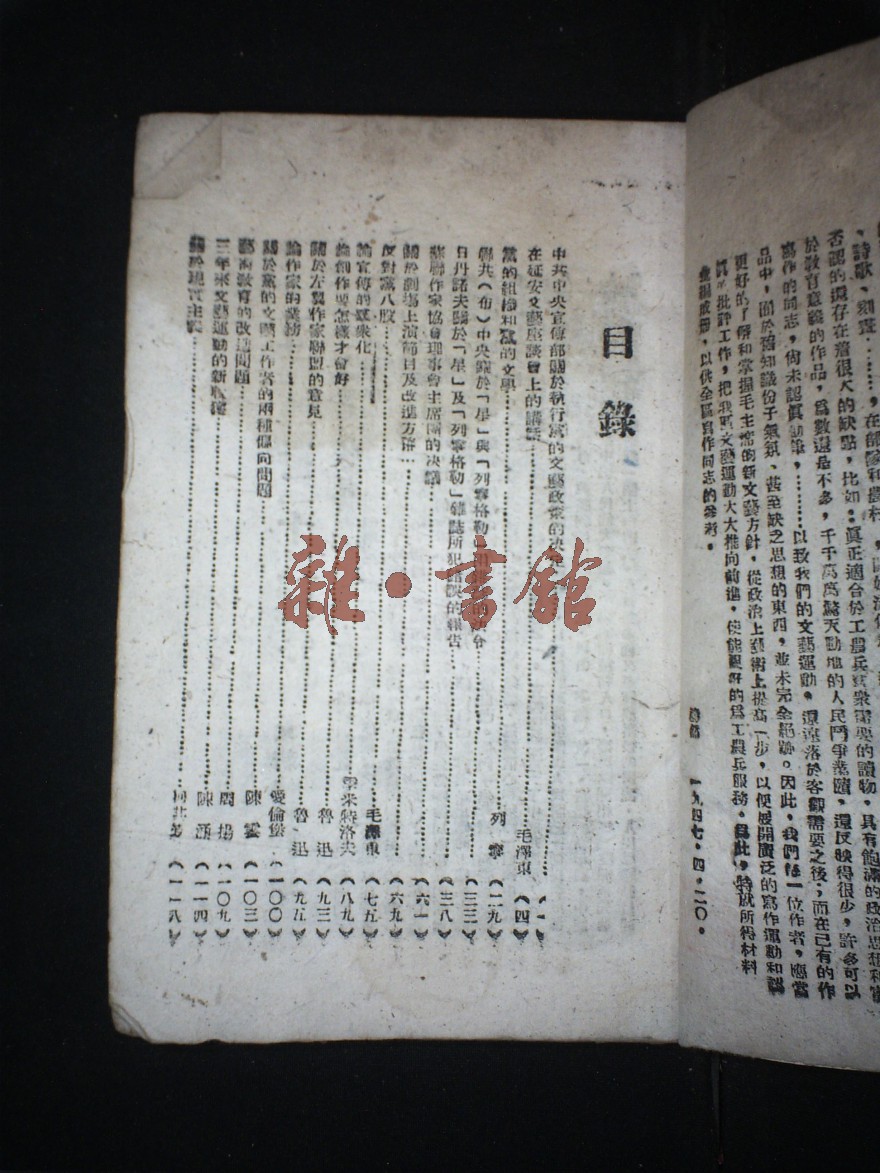 、詩歌、刻畫……，在部隊和農村，
否認的還存在着很大的缺點，比如：眞正適合於工農兵羣衆需要的讀物，具有飽滿的政治思想和富
於教育意義的作品，爲數還是不多，千千萬萬驚天動地的人民鬥爭業蹟，還反映得很少，許多可以
寫作的同志，尙未認眞動筆，………以致我們的文藝運動，還遠落於客觀需要之後；而在已有的作
品中，關於舊知識份子氣氛、甚至缺乏思想的東西，並未完全絕跡。因此，我們每一位作者，應當
更好的了解和掌握毛主席的新文藝方針，從政治上藝術上提高一步，以便展開廣泛的寫作運動和認
眞的批評工作，把我區文藝運動大大推向前進，使能更好的爲工農兵服務。爲此，特就所得材料
彙編成册，以供全區寫作同志的參考。
編者 一九四七・四・二〇・
目錄
中共中央宣傳部關於執行黨的文藝政策的決定………（一）
在延安文藝座談會上的講話………毛澤東（四）
黨的組織和黨的文學………列寧（二九）
聯共（布）中央關於「星」與「列寧格勒」兩雜誌的命令………（三三）
日丹諾夫關於「星」及「列寧格勒」雜誌所犯錯誤的報告………（三八）
蘇聯作家協會理事會主席團的決議………（六一）
關於劇場上演節目及改進方啓………（六九）
反對黨八股………毛澤東（七五）
論宣傳的羣衆化………季米特洛夫（八九）
論創作要怎樣才會好………魯迅（九三）
關於左翼作家聯盟的意見………魯迅（九五）
論作家的業務………愛倫堡（一〇〇）
關於黨的文藝工作者的兩種傾向問題………陳雲（一〇三）
藝術教育的改造問題………周揚（一〇九）
三年來文藝運動的新收穫………陳涌（一一四）
關於現實主義………（一一八）
雜・書館